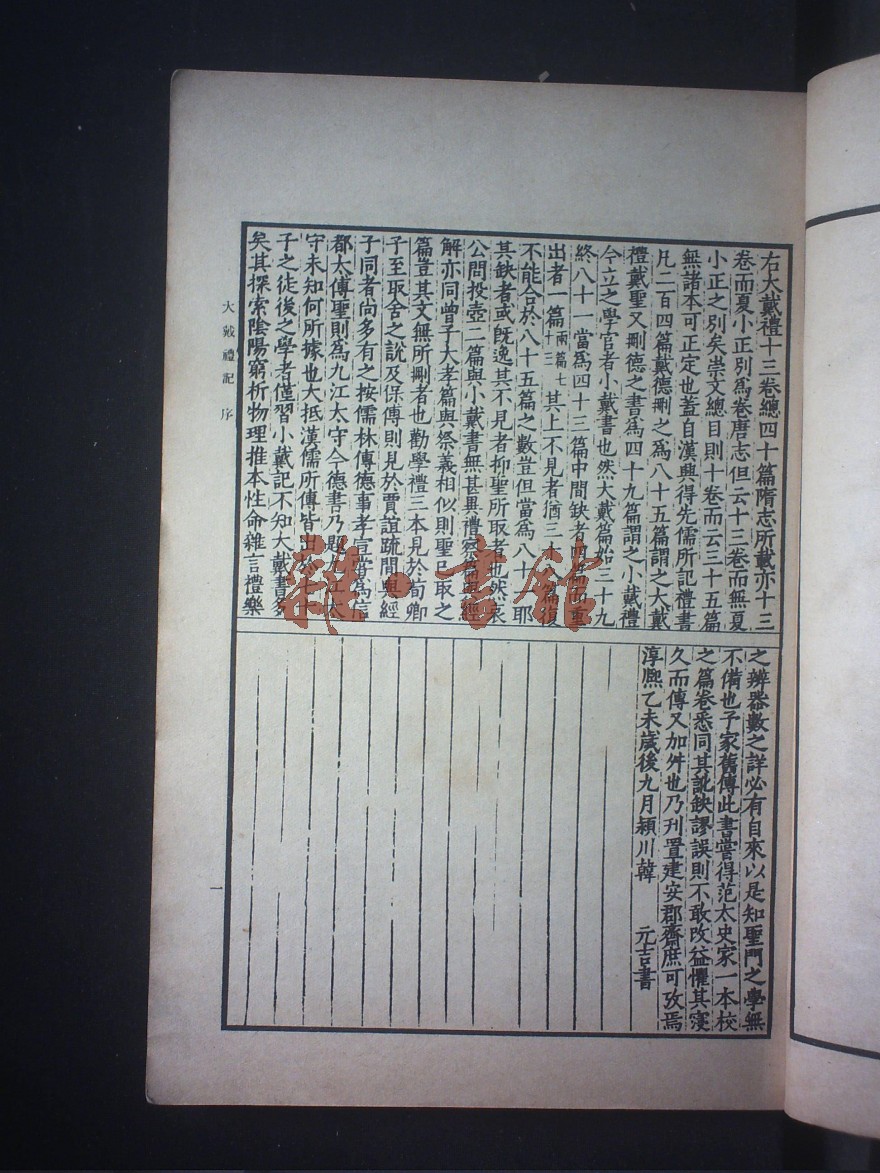 右大戴禮十三卷總四十篇隋志所載亦十三
卷而夏小正別為卷唐志但云十三卷而無夏
小正之別矣崇文總目則十卷而云三十五篇
無諸本可正定也蓋自漢興得先儒所記禮書
凡二百四篇戴德刪之為八十五篇謂之大戴
禮戴聖又刪德之書為四十九篇謂之小戴禮
今立之學官者小戴書也然大戴篇始三十九
終八十一當為四十三篇中間缺者四篇而重
出者一篇兩篇七十三其上不見者猶三十八篇復
不能合於八十五篇之數豈但當為八十一耶
其缺者或既逸其不見者抑聖所取者也然哀
公問投壺二篇與小戴書無甚異禮察篇與經
解亦同曾子大孝篇與祭義相似則聖已取之
篇豈其文無所刪者也勸學禮三本見於荀卿
子至取舍之說及保傅則見於賈誼疏間與經
子同者尚多有之按儒林傳德事孝宣嘗為信
都太傅聖則為九江太守今德書乃題九江太
守未知何所據也大抵漢儒所傳皆出於七十
子之徒後之學者僅習小戴記不知大戴書多
矣其探索陰陽窮析物理推本性命雜言禮樂
之辨器數之詳必有自來以是知聖門之學無
不備也予家舊傳此書嘗得范太史家一本校
之篇卷悉同其訛缺謬誤則不敢改益懼其寖
久而傳又加舛也乃刋置建安郡齋庶可攷焉
淳熙乙未歲後九月潁川韓 元吉書
大戴禮記 序
一
雜·書館